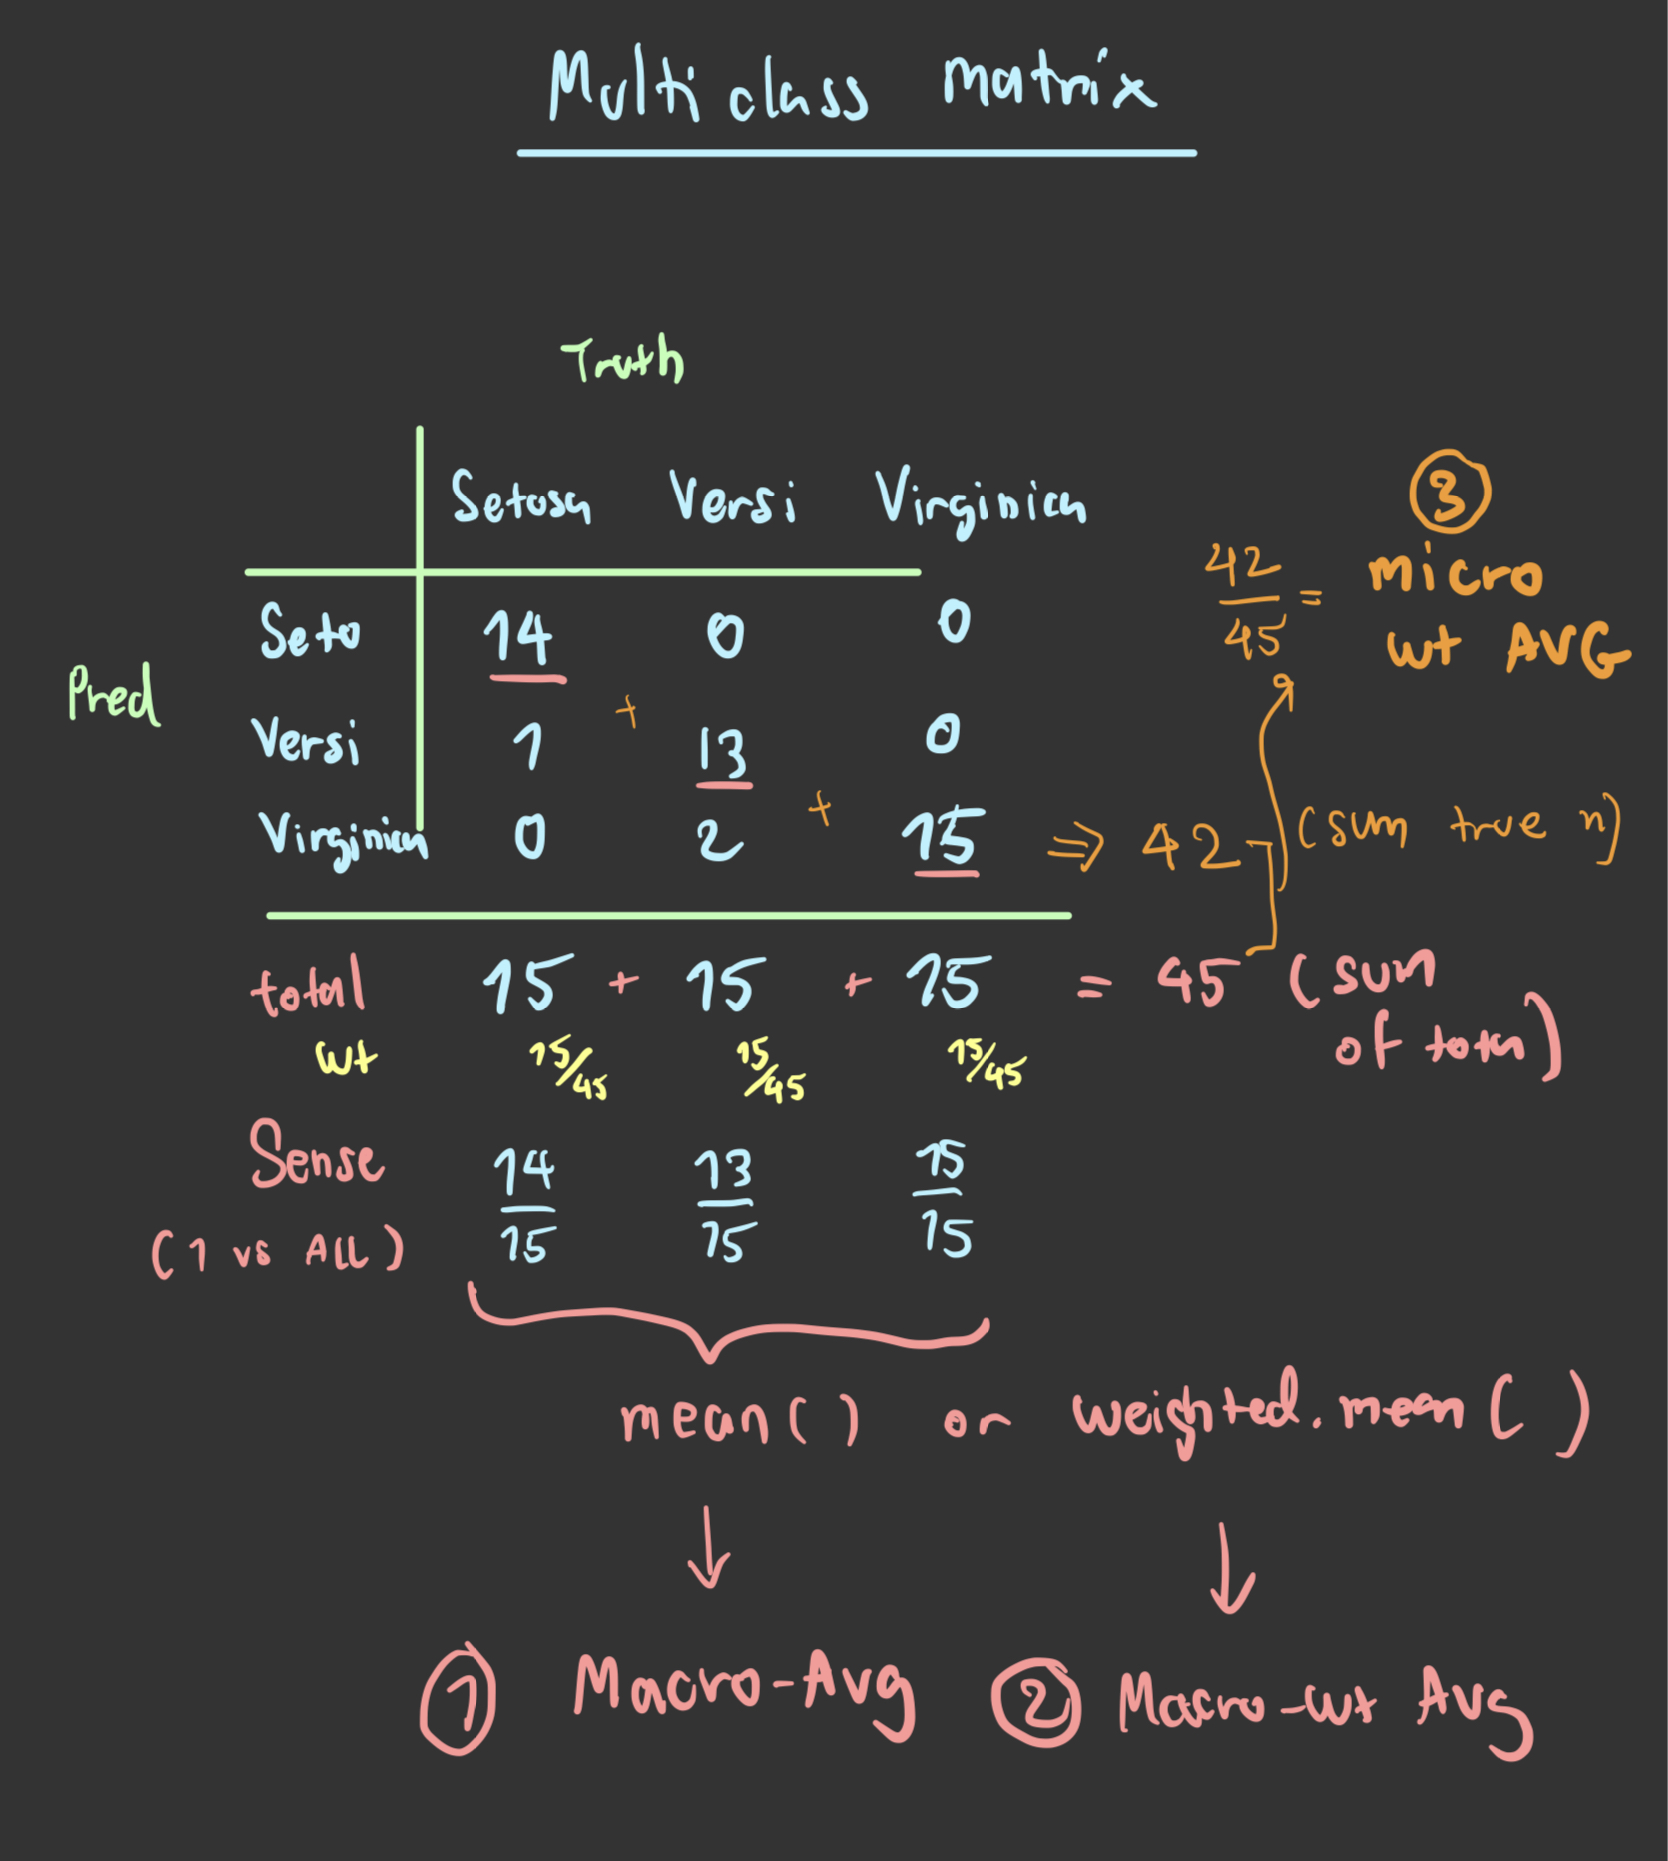 Multi class matrix
Truth
Setosa Versi Virginica
Pred
Seto 14 0 0
Versi 1 + 13 0
Virginica 0 2 + 15 ⇒ 42 (sum true n)
42/45 = micro wt AVG
3
total 15 + 15 + 15 = 45 (sum of total)
wt 15/45 15/45 15/45
Sense 14/15 13/15 15/15
(1 vs All)
mean() or weighted.mean( )
↓ ↓
1 Macro-Avg 2 Macro-wt Avg